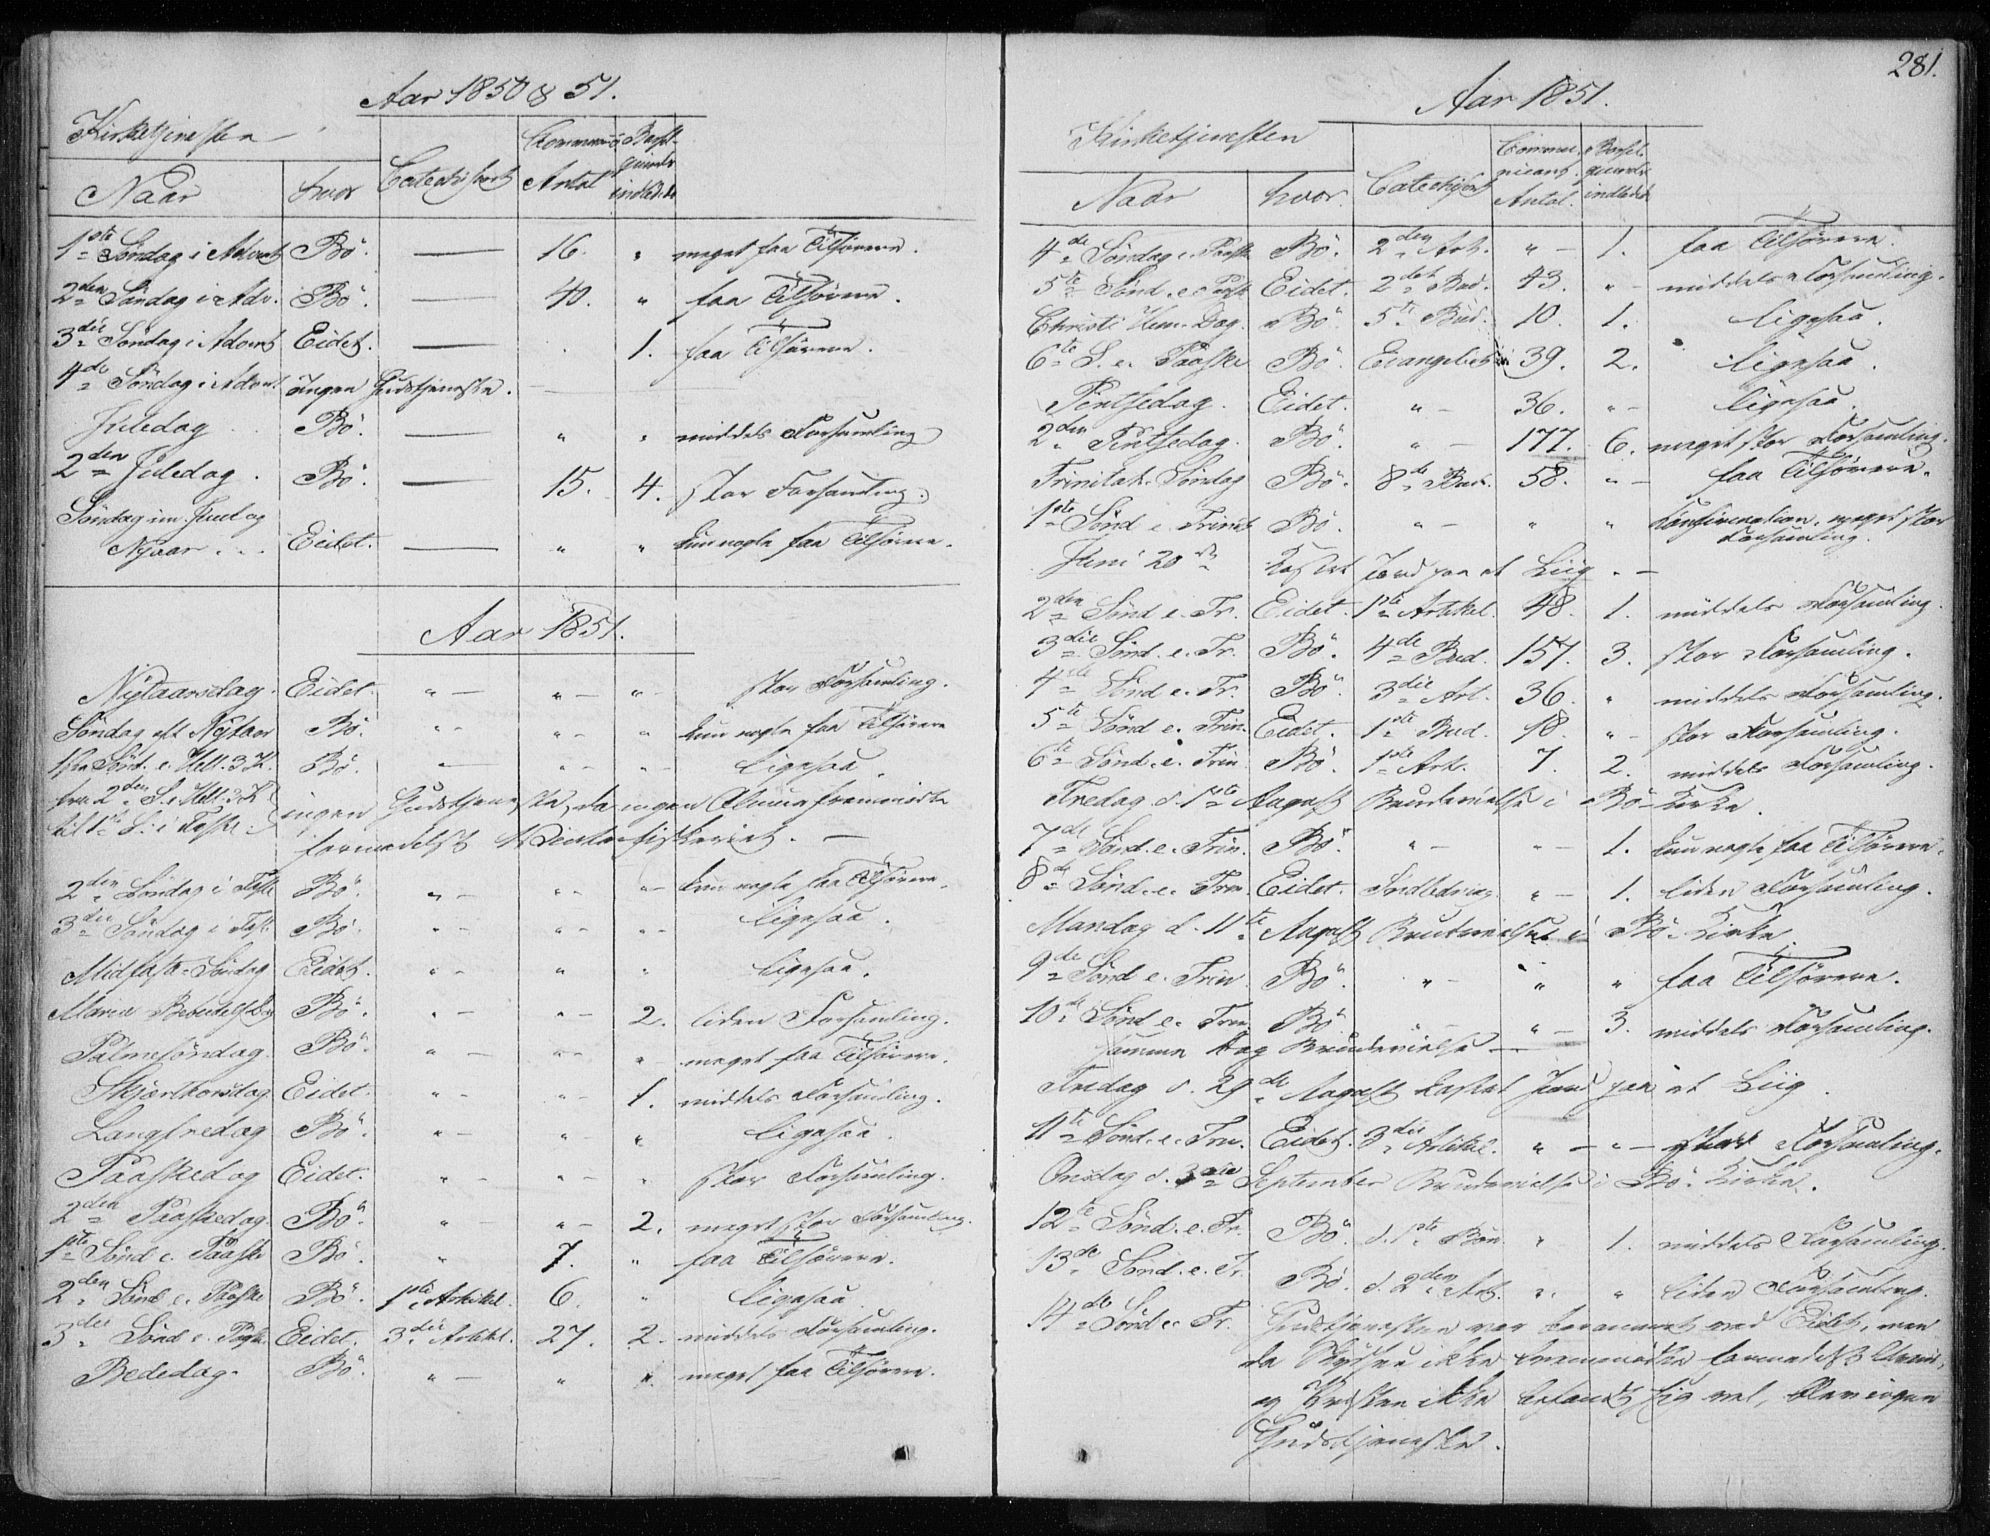 Aar 1850 & 51.
Kirketjenesten
Naar hvor Catechisert Communic: Antal Barselquinder indledede
1ste Søndag i Advent Bö. — 16. " meget faa Tilhørere.
2den Søndag i Adv. Bö. — 40. " faa Tilhørere.
3die Søndag i Advent Eidet. — . 1. faa Tilhørere.
4de Søndag i Advent ingen Gudstjeneste.
Juledag Bö. — " " middels Forsamling
2den Juledag. Bö. — 15. 4. stor Forsamling.
Søndag im. Juul og
Nyaar... Eidet. — " " kun nogle faa Tilhørere.
Aar 1851.
Nytaarsdag. Eidet. " — " — " — stor Forsamling.
Søndag eft Nytaar Bö. " - " - " kun nogle faa Tilhørere
1ste Sönd. e. Hell. 3 K. Bö. " — " - " - ligesaa.
fra 2den S. e. Hell. 3 K.
til 1ste S. i Faste ingen Gudstjeneste, da ingen Almue fremmødte
formedelst Vinterfiskeriet. —
2den Søndag i Faste Bö. " - " - " - kun nogle faa Tilhørere.
3die Søndag i Fast. Bö. " - " - " - ligesaa.
Midfaste-Søndag Eidet. " - " " ligesaa.
Maria Bebudelses Dag Bö. " - " - 2. liden Forsamling.
Palmesøndag. Bö. " - " - " meget faa Tilhørere.
Skjærthorsdag Eidet. " - " - 1. middels Forsamling.
Langfredag Bö. " - " - " ligesaa.
Paaskedag Eidet. " - " - " stor Forsamling.
2den Paaskedag. Bö. " - " - 2. meget stor Forsamling.
1ste Sönd e. Paaske Bö. " 7. " faa Tilhørere.
2den Sönd e. Paaske Bö. 1ste Artikel. 6. " ligesaa
3die Sönd e. Paaske Eidet. 3die Artikl. 27. 2. middels Forsamling.
Bededag. Bö. " - " " meget faa Tilhørere.
281.
Aar 1851.
Kirketjenesten
Naar hvor. Catechisert Communicant. Antal. Barselquinder indledede
4de Søndag e. Paaske Bö. 2den Art. " - 1. faa Tilhørere.
5te Sönd. e. Paaske Eidet. 2det Bud. 43. " - middels Forsamling.
Christi Him. Dag. Bö. 5te Bud. 10. 1. ligesaa.
6te S. e. Paaske Bö. Evangeliet 39. 2. ligesaa.
Pintsedag. Eidet. " - 36. " - ligesaa.
2den Pintsedag. Bö. " - 177. 6. meget stor Forsamling.
Trinitat. Söndag Bö. 8de Bud. 58. " - faa Tilhørere.
1ste Sönd e Trinit Bö. " - " " Confirmation. meget stor
Forsamling.
Juni 20de kastet Jord paa et Liig. —
2den Sönd e. Tr. Eidet. 1ste Artikel 48. 1. middels Forsamling.
3die Sönd. e. Tr. Bö. 4de Bud. 157. 3. stor Forsamling.
4de Sönd e. Tr. Bö. 3die Art. 36. " middels Forsamling.
5te Sönd e. Trin. Eidet. 1ste Bud. 18. " - stor Forsamling.
6te Sönd. e. Trin. Bö. 1ste Art. 7. 2. middels Forsamling.
Fredag d. 1ste August Brudevielse i Bö-Kirke.
7de Sönd. e. Trin. Bö. " - " - 1. kun nogle faa Tilhørere.
8de Sönd. e. Trin. Eidet. " - 1. liden Forsamling.
Mandag d. 11te August Brudevielse i Bö. Kirke.
9de Sönd e. Trin Bö. " - " " faa Tilhørere.
10de Sönd e. Trin Bö. " - 3. middels Forsamling.
samme Dag Brudevielse —
Fredag d. 29de August kastet Jord paa et Liig.
11te Sönd. e. Trin. Eidet. 3die Artikel. " - " - stor Forsamling.
Onsdag d. 3die September Brudevielse i Bö. Kirke.
12te Sönd. e. Tr. Bö. d. 1ste Bön " 1. middels Forsamling.
13de Sönd. e. Tr. Bö. d. 2den Art. " " liden Forsamling.
14de Sönd e. Tr. Gudstjenesten var berammet ved Eidet, men
da Skydsen ikke fremmødte formedelst
og Præsten ikke befandt sig vel, blev ingen
Gudstjeneste.